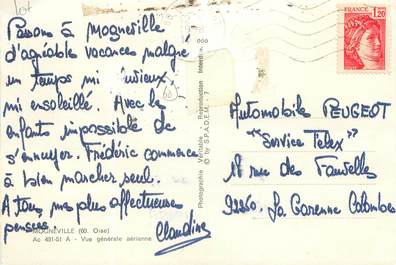 Passons à Mogneville
d'agréable vacances malgré
un temps mi pluvieux
mi ensoleillé. Avec les
enfants impossible de
s'ennuyer. Frédéric commence
à bien marcher seul.
A tous, mes plus affectueuses
pensées. Claudine
MOGNEVILLE (60. Oise)
Ac 491-51 A - Vue générale aérienne
Photographie Véritable - Reproduction Interdite.
© by S.P.A.D.E.M.
REPUBLIQUE
FRANCE
1,20
Automobiles PEUGEOT
"Service Telex"
18 rue des Fauvelles
92250. La Garenne Colombes